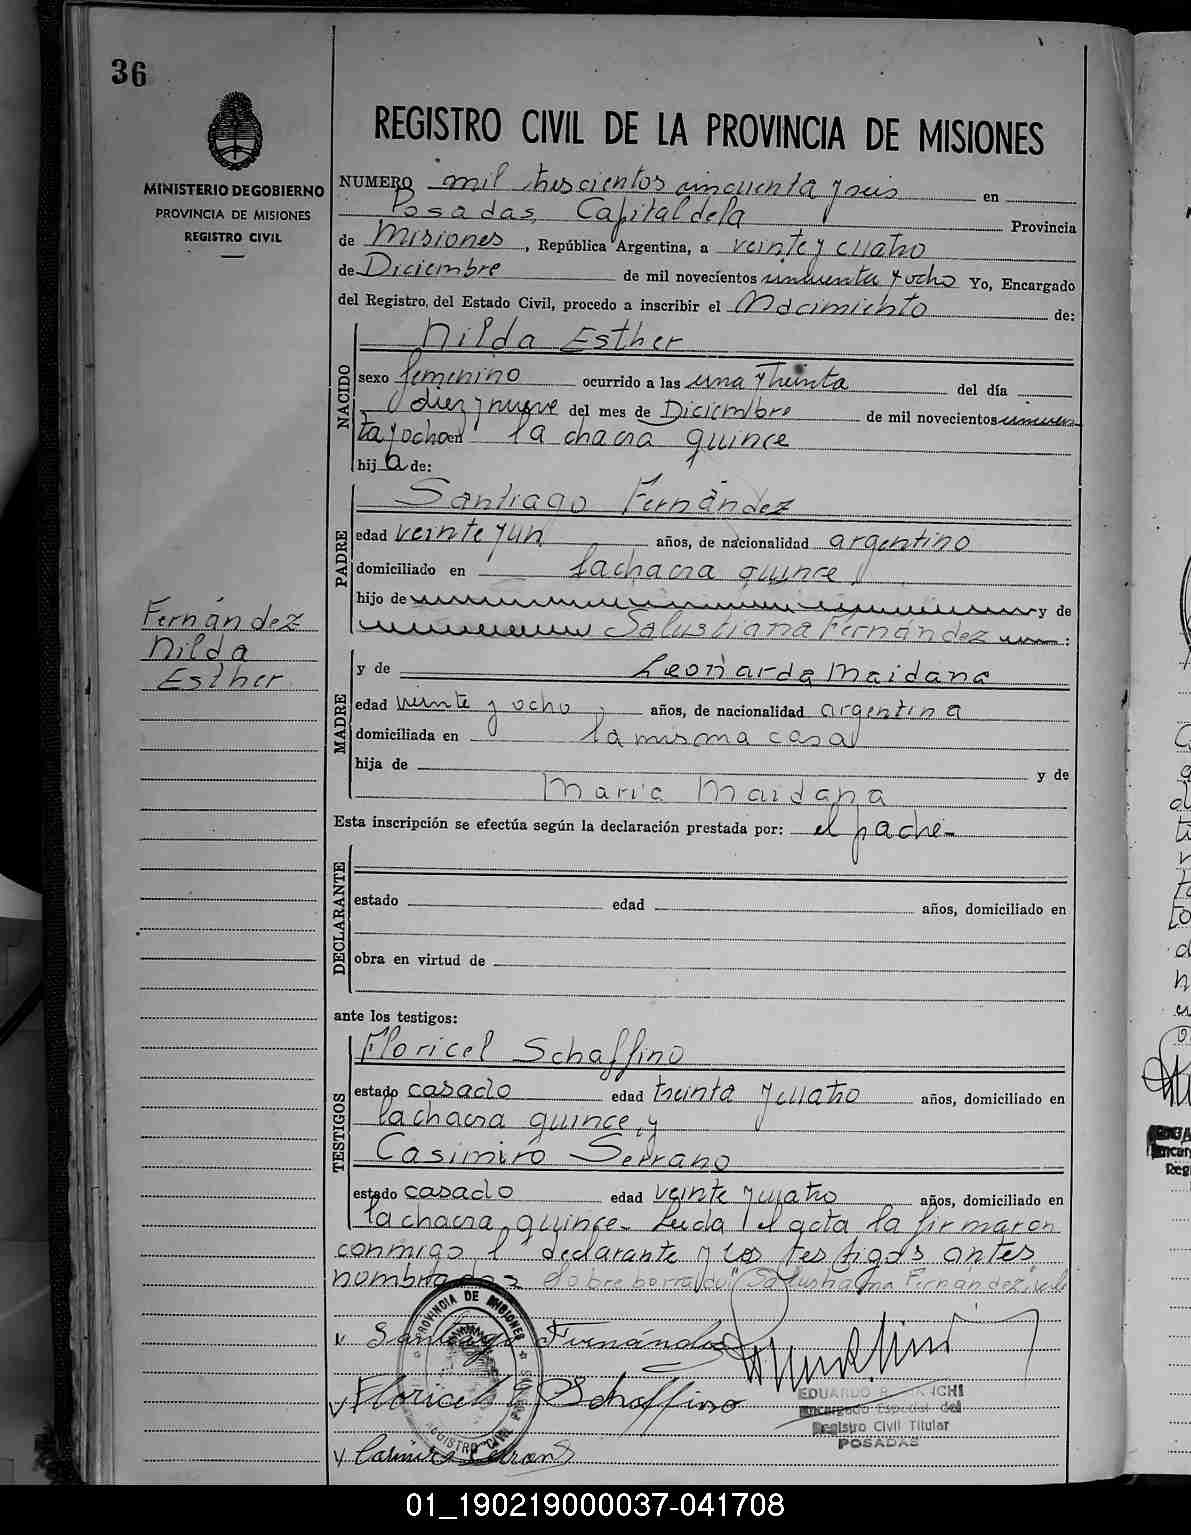 36
MINISTERIO DE GOBIERNO
PROVINCIA DE MISIONES
REGISTRO CIVIL
REGISTRO CIVIL DE LA PROVINCIA DE MISIONES
NUMERO mil trescientos cincuenta y seis en
Posadas, Capital de la Provincia
de Misiones, República Argentina, a veinte y cuatro
de Diciembre de mil novecientos cincuenta y ocho Yo, Encargado
del Registro del Estado Civil, procedo a inscribir el Nacimiento de:
NACIDO
Nilda Esther
sexo femenino ocurrido a las una y treinta del día
diez y nueve del mes de Diciembre de mil novecientos cincuen
ta y ocho en la chacra quince
hija de:
PADRE
Santiago Fernández
edad veinte y un años, de nacionalidad argentino
domiciliado en la chacra quince
hijo de y de
Salustiana Fernández :
Fernández
Nilda
Esther
MADRE
y de Leonarda Maidana
edad veinte y ocho años, de nacionalidad argentina
domiciliada en la misma casa
hija de y de
Maria Maidana
Esta inscripción se efectúa según la declaración prestada por: el padre-
DECLARANTE
estado edad años, domiciliado en
obra en virtud de
ante los testigos:
TESTIGOS
Floricel Schaffino
estado casado edad treinta y cuatro años, domiciliado en
la chacra quince, y
Casimiro Serrano
estado casado edad veinte y cuatro años, domiciliado en
la chacra quince- Leida el acta la firmaron
conmigo el declarante y los testigos antes
nombrados Sobre borrado: "Salustiana Fernandez", vale
Santiago Fernández
Floricel Schaffino
Casimiro Serrano
PROVINCIA DE MISIONES
REGISTRO CIVIL
POSADAS
EDUARDO
Encargado Especial del
Registro Civil Titular
POSADAS
01_190219000037-041708